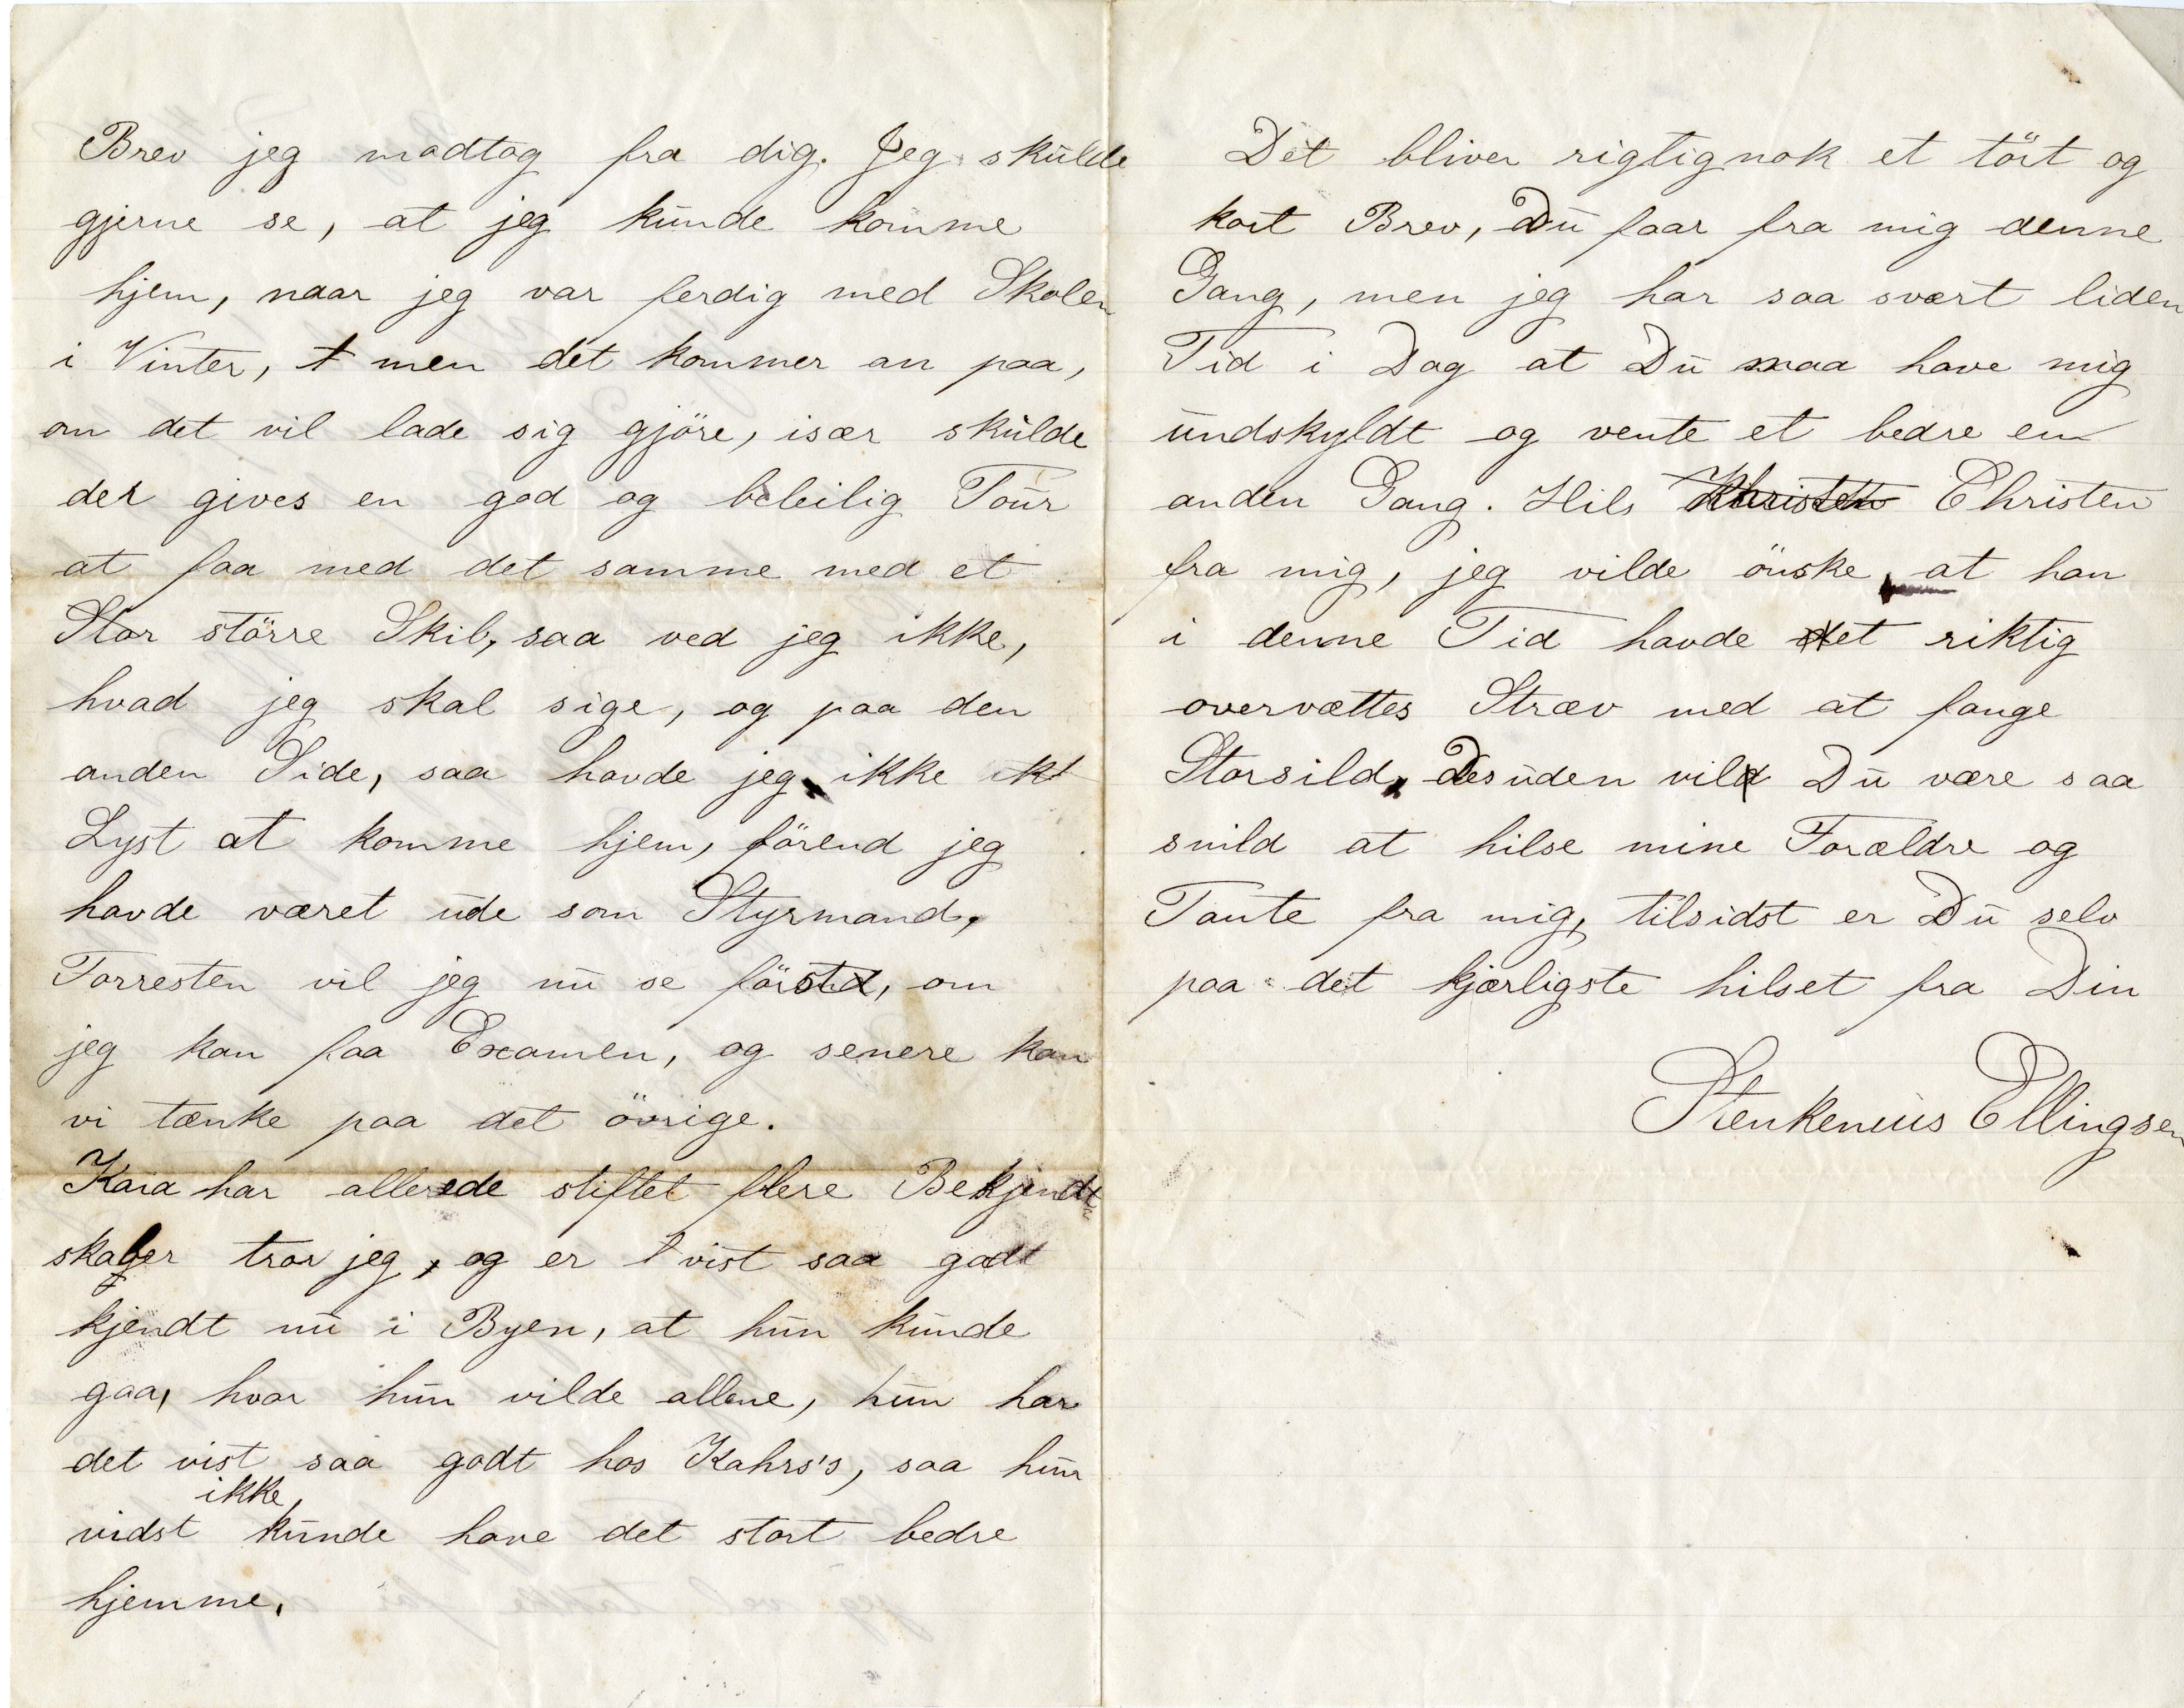 Brev jeg modtog fra dig. Jeg skulde
gjerne se, at jeg kunde komme
hjem, naar jeg var ferdig med Skolen
i Vinter, t men det kommer an paa,
om det vil lade sig gjöre, især skulde
der gives en god og beleilig Tour
at faa med det samme med et
Stor större Skib, saa ved jeg ikke,
hvad jeg skal sige, og paa den
anden Side, saa havde jeg ikke ikt
Lyst at komme hjem, förend jeg
havde været ude som Styrmand,
Forresten vil jeg nu se först, om
jeg kan faa Examen, og senere kan
vi tænke paa det övrige.
Kaia har allerede stiftet flere Bekjendt
skaber tror jeg, og er t vist saa godt
kjendt nu i Byen, at hun kunde
gaa, hvor hun vilde allene, hun har
det vist saa godt hos Kahrs's, saa hun
ikke,
vidst kunde have det stort bedre
hjemme.
Det bliver rigtignok et tört og
kort Brev, Du faar fra mig denne
Gang, men jeg har saa svært liden
Tid i Dag at Du maa have mig
undskyldt og vente et bedre en
anden Gang. Hils Khristen Christen
fra mig, jeg vilde önske, at han
i denne Tid havde det riktig
overvættes Stræv med at fange
Storsild, Desuden vild Du være saa
snild at hilse mine Forældre og
Tante fra mig, tilsidst er Du selv
paa det kjærligste hilset fra Din
Stenkenius Ellingsen